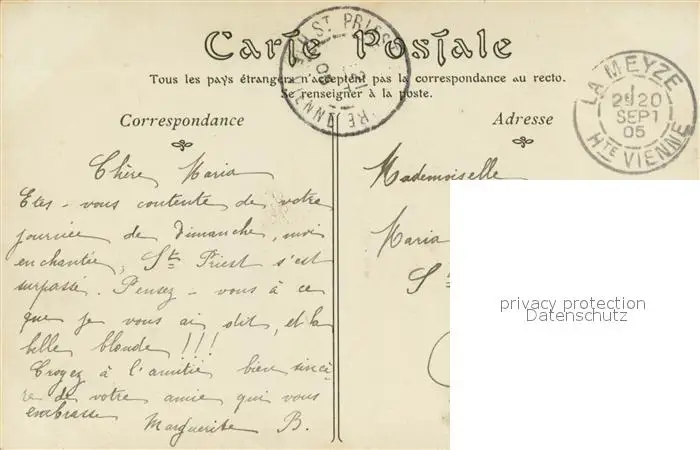 Carte Postale
Tous les pays étrangers n'acceptent pas la correspondance au recto.
Se renseigner à la poste.
Correspondance
Chère Maria
Etes-vous contente de votre
journée de dimanche, moi
enchantée, St Priest s'est
surpassée. Pensez-vous à ce
que je vous ai dit, et la
belle blonde !!!
Croyez à l'amitié bien sincè
re de votre amie qui vous
embrasse
Marguerite B.
Adresse
Mademoiselle
Maria
S
ST PRIEST
VIENNE
LA MEYZE
2E 20
SEPT
05
HTE VIENNE
privacy protection
Datenschutz